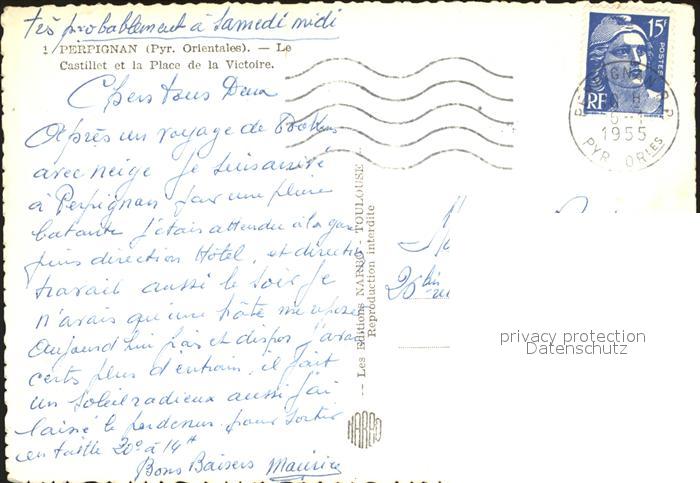 très probablement à Samedi midi
1 PERPIGNAN (Pyr. Orientales). — Le
Castillet et la Place de la Victoire.
Chers tous Deux
Après un voyage de
avec neige je suis arrivé
à Perpignan par une pluie
batante j'étais attendu à la gare
puis direction Hôtel, et direction
travail aussi le soir je
n'avais qu'une hâte me reposer
Aujourd'hui frais et dispos j'avais
certes plus d'entrain, il fait
un soleil radieux aussi j'ai
laissé le pardessus pour sortir
en taille 20° à 14H
Bons Baisers Maurice
-- Les Editions NARBO - TOULOUSE --
Reproduction interdite
NARBO
15F
POSTES
RF
PERPIGNAN
1955
PYR. ORles
26 bis
privacy protection
Datenschutz